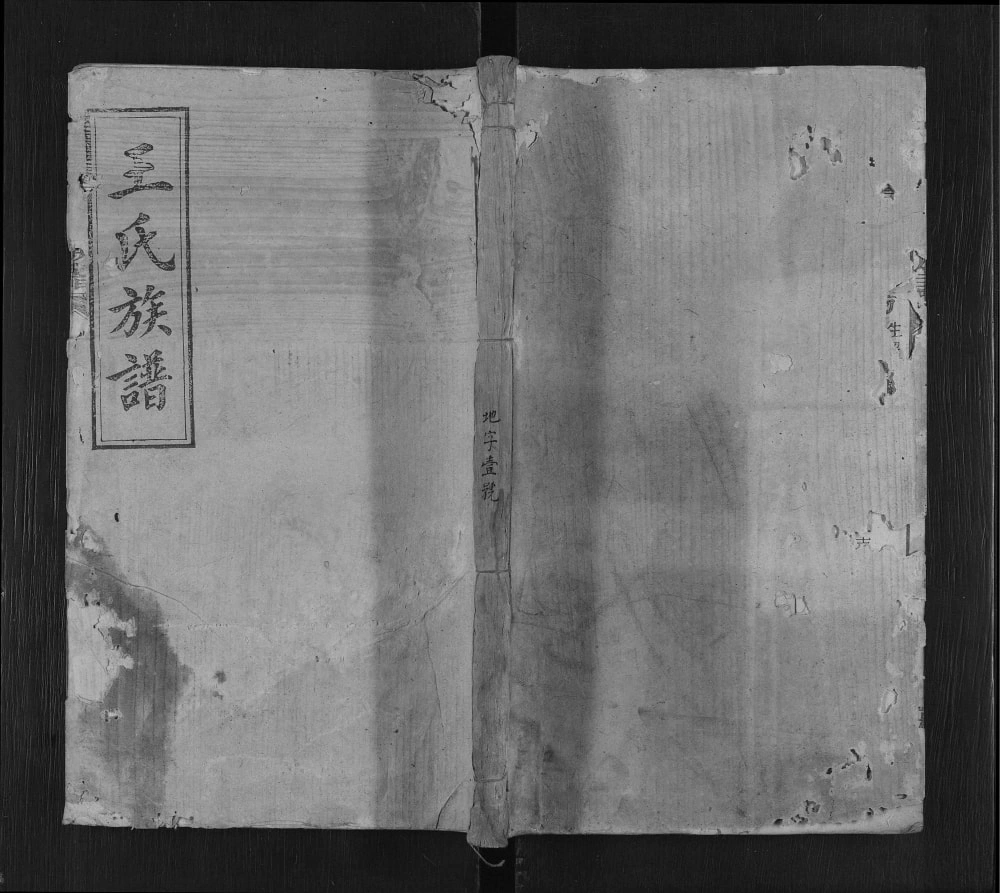 王氏族譜
地字壹號
生